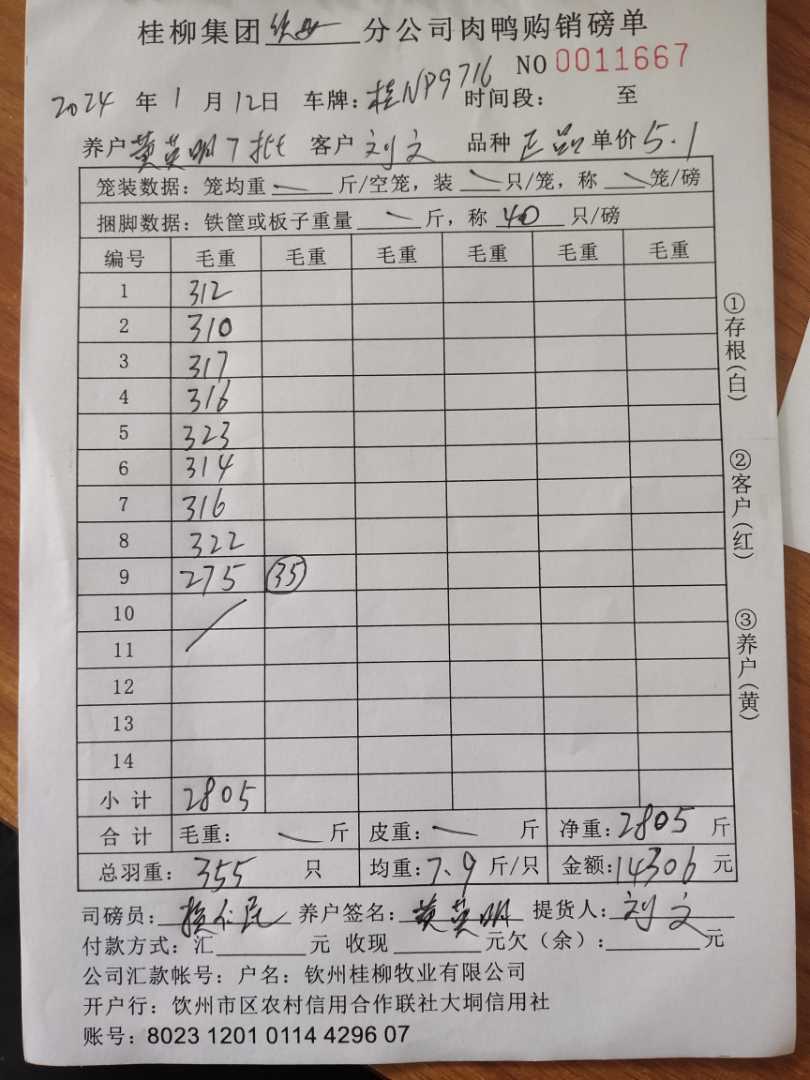 桂柳集团 钦州 分公司肉鸭购销磅单
NO 0011667
2024 年 1 月 12日 车牌: 桂NP9716 时间段: 至
养户 黄英明7批 客户 刘文 品种 正品 单价 5.1
笼装数据: 笼均重 斤/空笼, 装 只/笼, 称 笼/磅
捆脚数据: 铁筐或板子重量 斤, 称 40 只/磅
编号 毛重 毛重 毛重 毛重 毛重 毛重
1 312
2 310
3 317
4 316
5 323
6 314
7 316
8 322
9 275 35
10
11
12
13
14
小 计 2805
合 计 毛重: 斤 皮重: 斤 净重: 2805 斤
总羽重: 355 只 均重: 7.9 斤/只 金额: 14306 元
①存根(白)
②客户(红)
③养户(黄)
司磅员: 养户签名: 黄英明 提货人: 刘文
付款方式: 汇 元 收现 元欠(余): 元
公司汇款帐号: 户名: 钦州桂柳牧业有限公司
开户行: 钦州市区农村信用合作联社大垌信用社
账号: 8023 1201 0114 4296 07